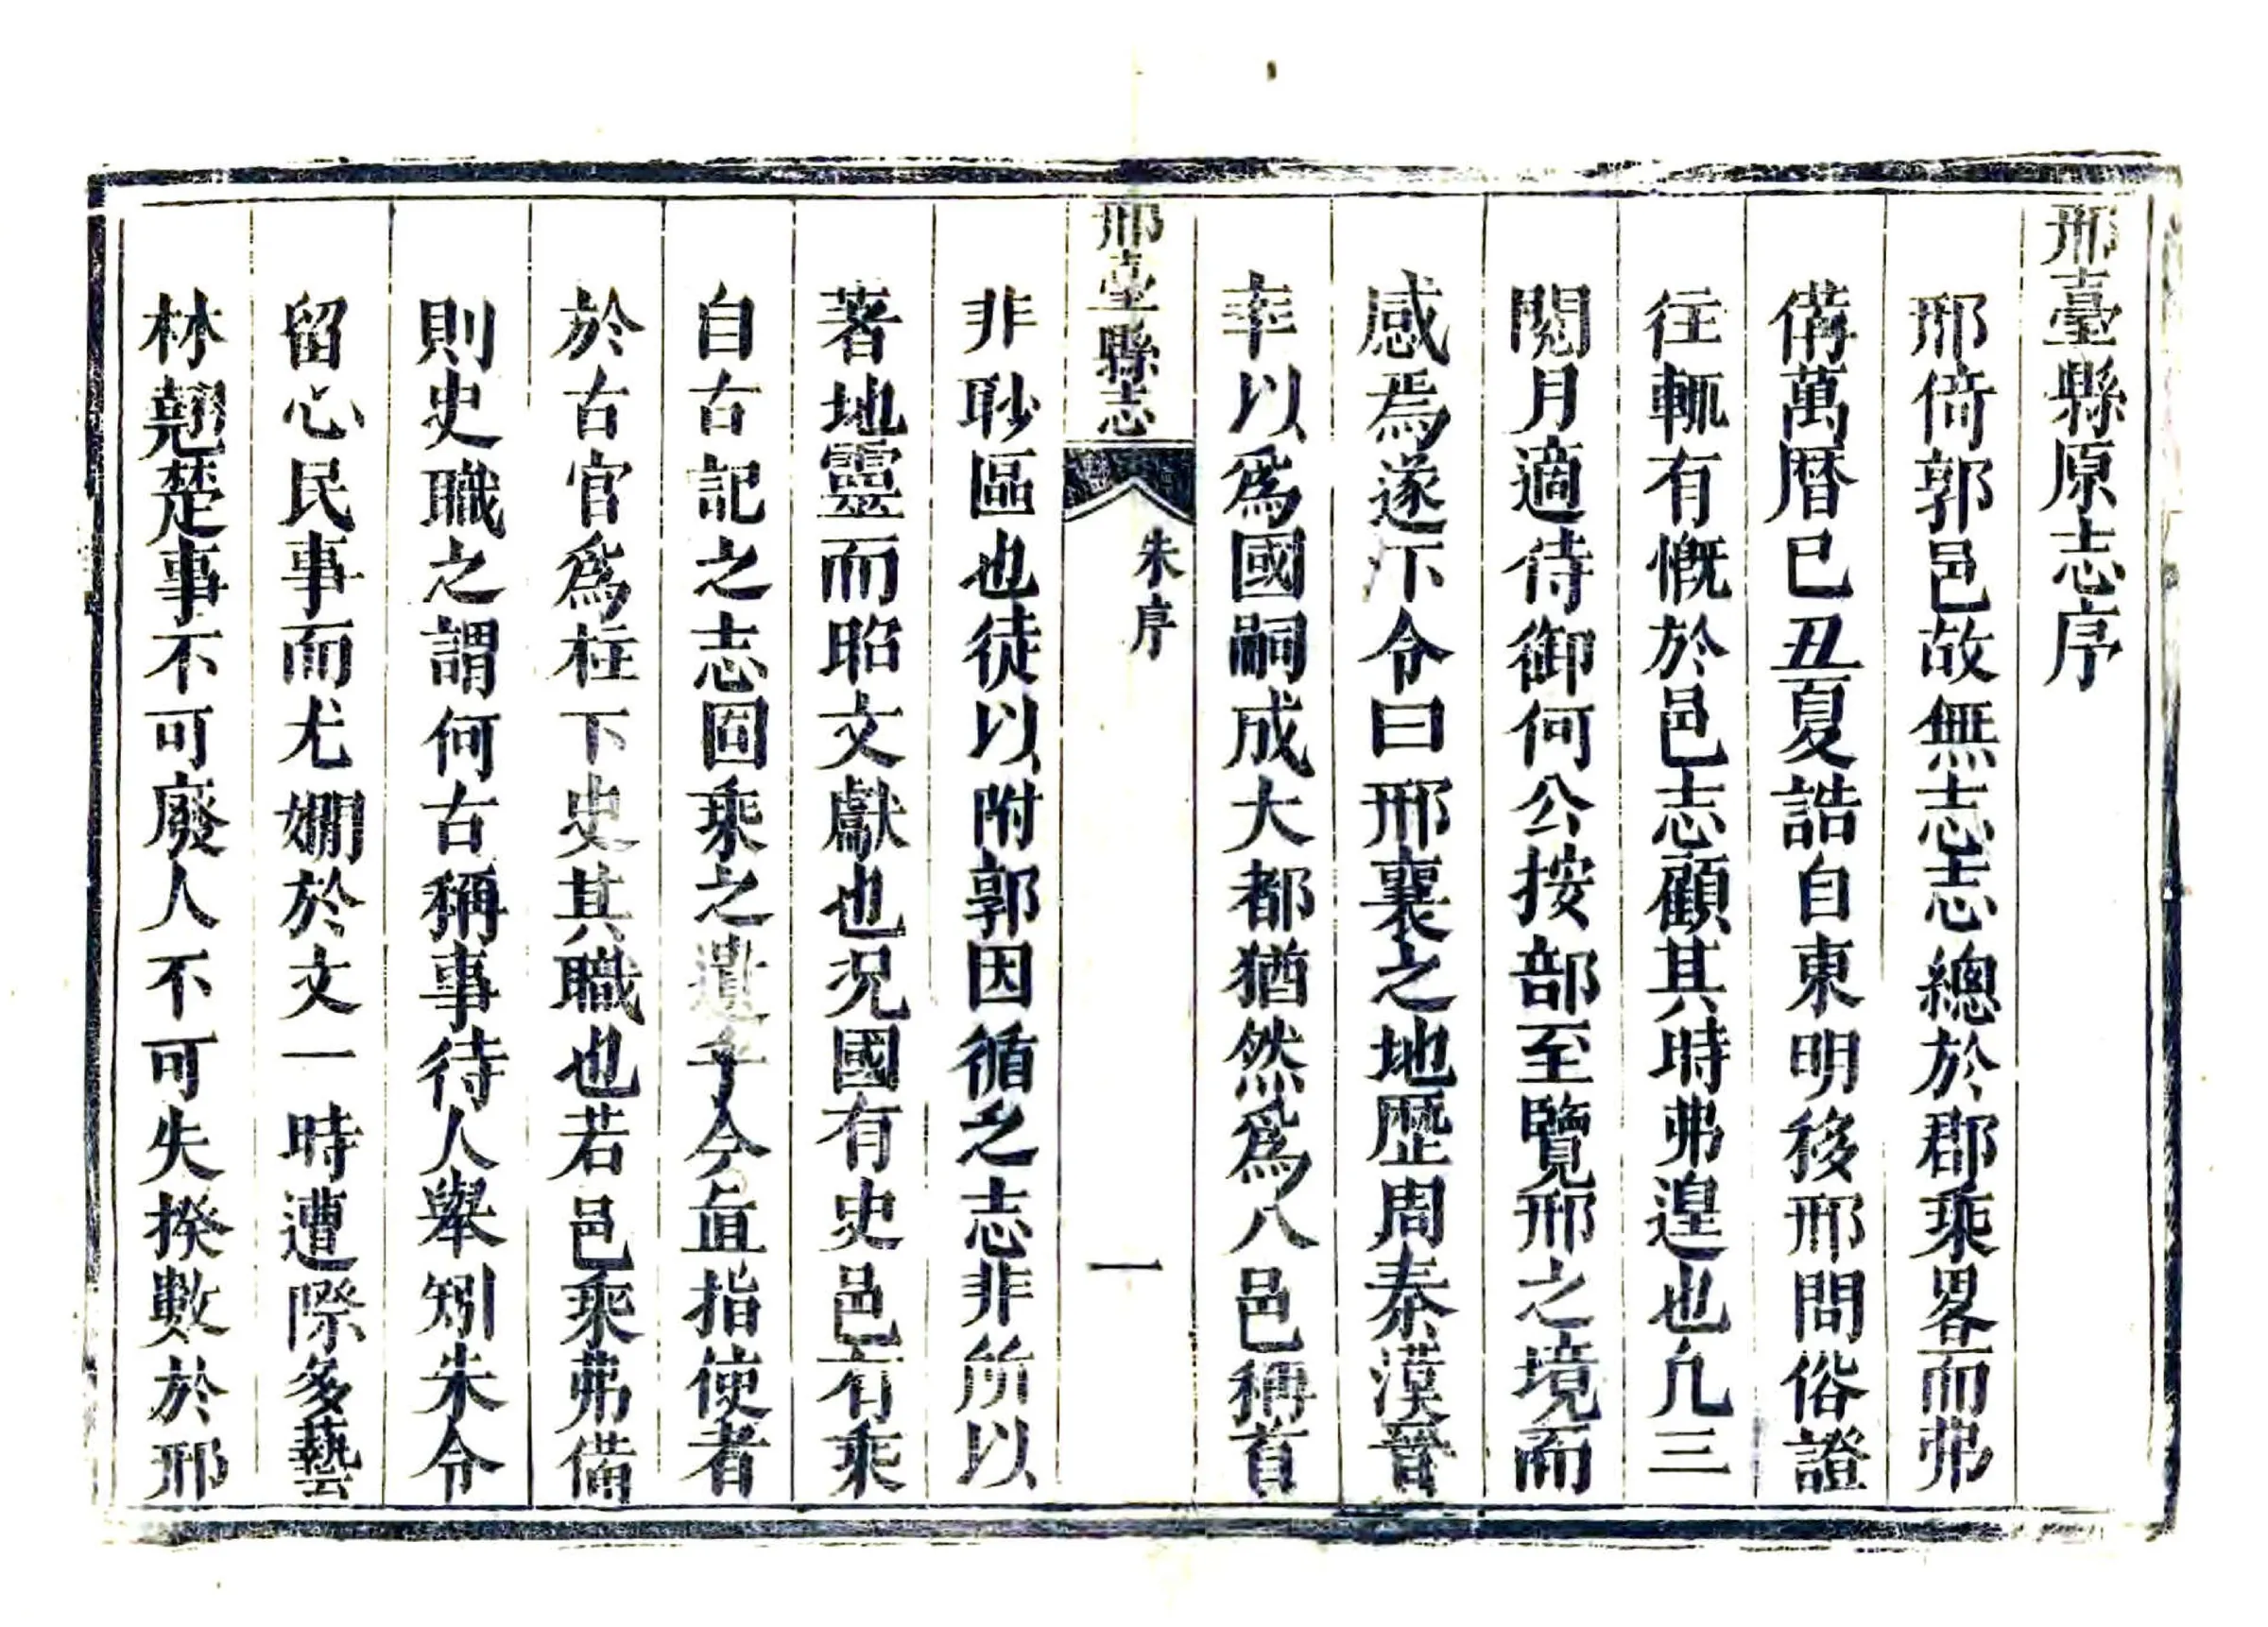 邢臺縣原志序
邢倚郭邑故無志志總於郡乘畧而弗
備萬曆已丑夏誥自東明移邢問俗證
往輒有慨於邑志顧其時弗遑也凢三
閱月適侍御何公按部至覽邢之境而
感焉遂下令曰邢襄之地歷周秦漢晉
率以爲國嗣成大都猶然爲八邑稱首
邢臺縣志
朱序
一
非眇區也徒以附郭因循之志非所以
著地靈而昭文獻也况國有史邑有乘
自古記之志固乘之遺乎今直指使者
於古官爲柱下史其職也若邑乘弗備
則史職之謂何古稱事待人舉矧朱令
留心民事而尤嫺於文一時遭際多藝
林翹楚事不可廢人不可失揆數於邢